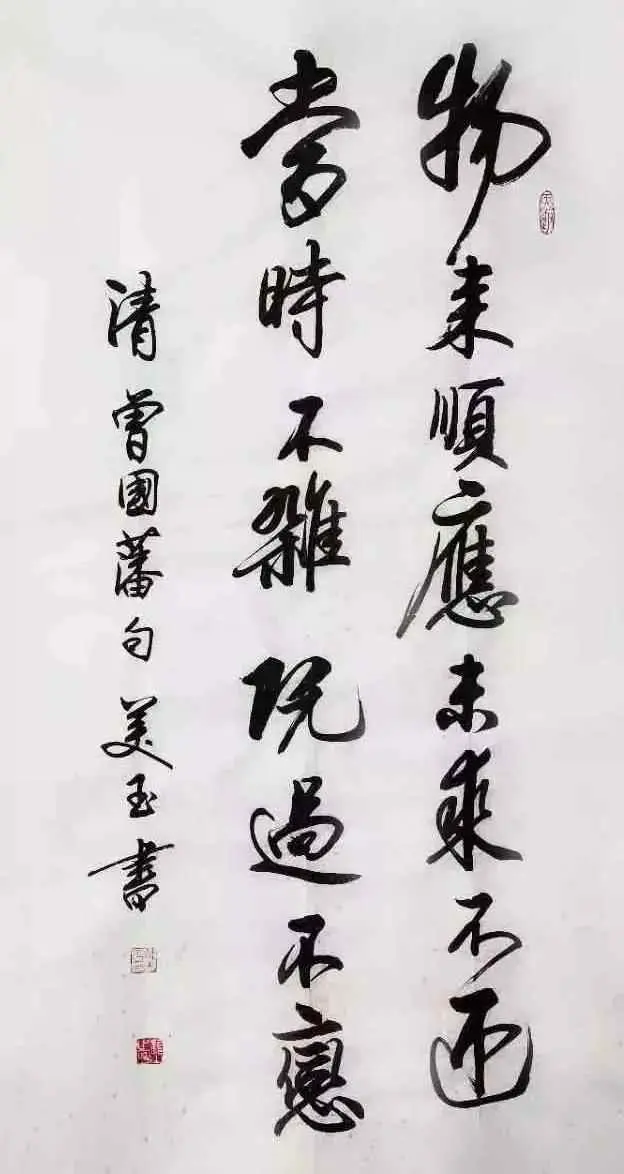 物来順應未來不迎
當時不雜既過不戀
清 曾國藩句 美玉書